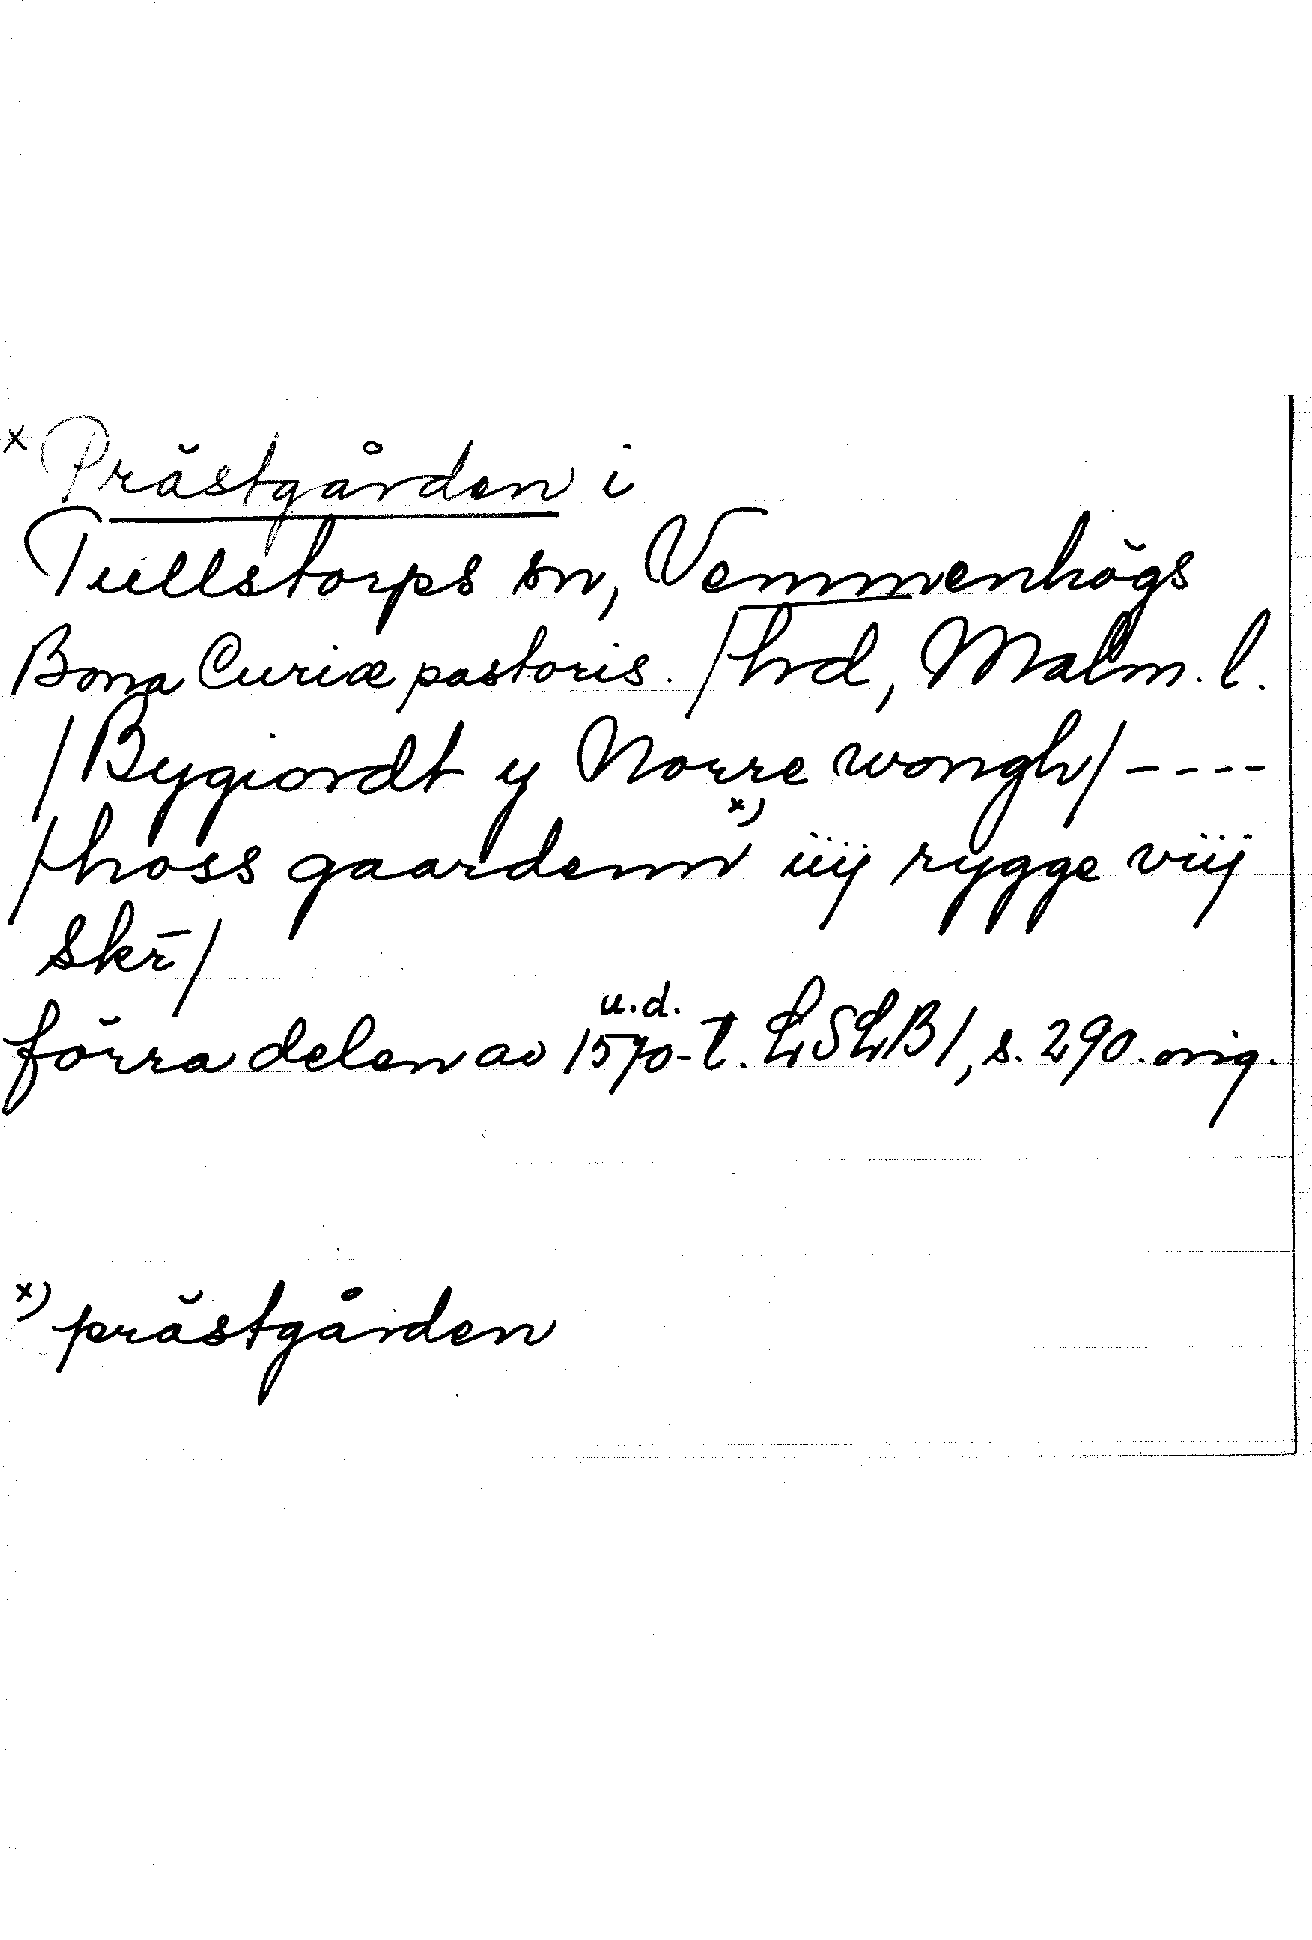 x Prästgården i
Tullstorps sn, Vemmenhögs
Bona Curiæ pastoris. /hd, Malm. l.
/Bygiordt y Norre wongh/ ----
/hoss gaardenn x) iiij rygge viij
skr̄/
förra delen av 1570-t. u.d. LSLB 1, s. 290. orig.
x) prästgården